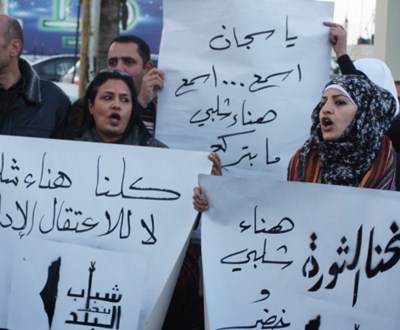 يا سجان
اسمع...اسمع
هناء شلبي
ما بتركع
كلنا هناء شل
لا للاعتقال الإدا
شباب
البلد
نحنا الثورة
هناء
شلبي
و
خضر